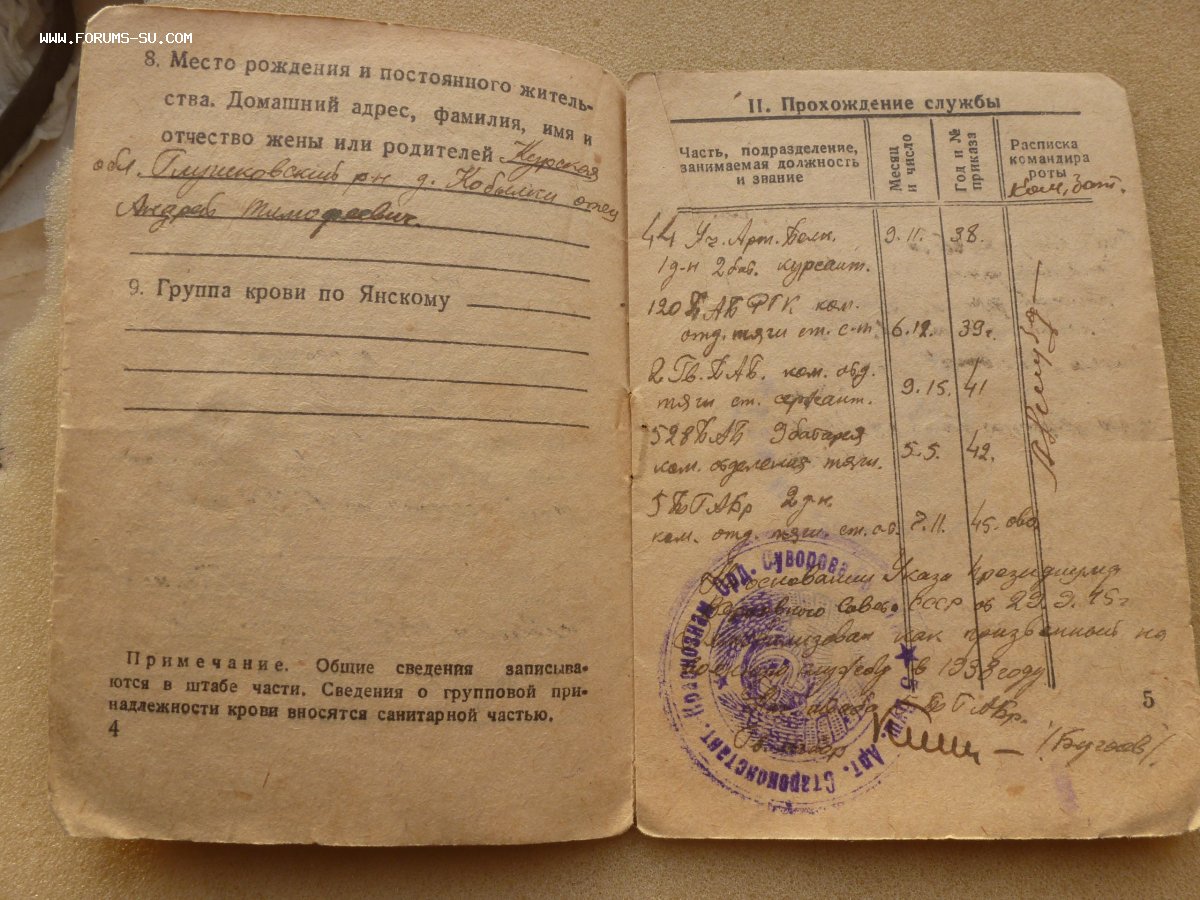 WWW.FORUMS-SU.COM
8. Место рождения и постоянного житель-
ства. Домашний адрес, фамилия, имя и
отчество жены или родителей Курская
обл. Глушковский рн д. Кобылки отец
Андрей Тимофеевич.
9. Группа крови по Янскому
Примечание. Общие сведения записыва-
ются в штабе части. Сведения о групповой при-
надлежности крови вносятся санитарной частью.
4
II. Прохождение службы
Часть, подразделение,
занимаемая должность
и звание
Месяц
и число
Год и №
приказа
Расписка
командира
роты
Ком. бат.
44 Уч. Арт. Полк. 9.11. 38.
1 д-н 2 бат. курсант.
120 БАБ РГК ком.
отд. тяги ст. с-т 6.12. 39г.
2 Гв. БАБ. ком. отд.
тяги ст. сержант. 9.15. 41
528 БАБ 9 батарея
ком. отделения тяги. 5.5. 42.
5 БГАБр 2 д-н.
ком. отд. тяги ст. 7.11. 45.
На основании Указа Президиума
Верховного Совета СССР от 25.9.45г
демобилизован как призванный на
службу в 1938 году
БГАБр.
Гв. майор
5
Арт. Староконстант. Краснознамен Орд. Суворова